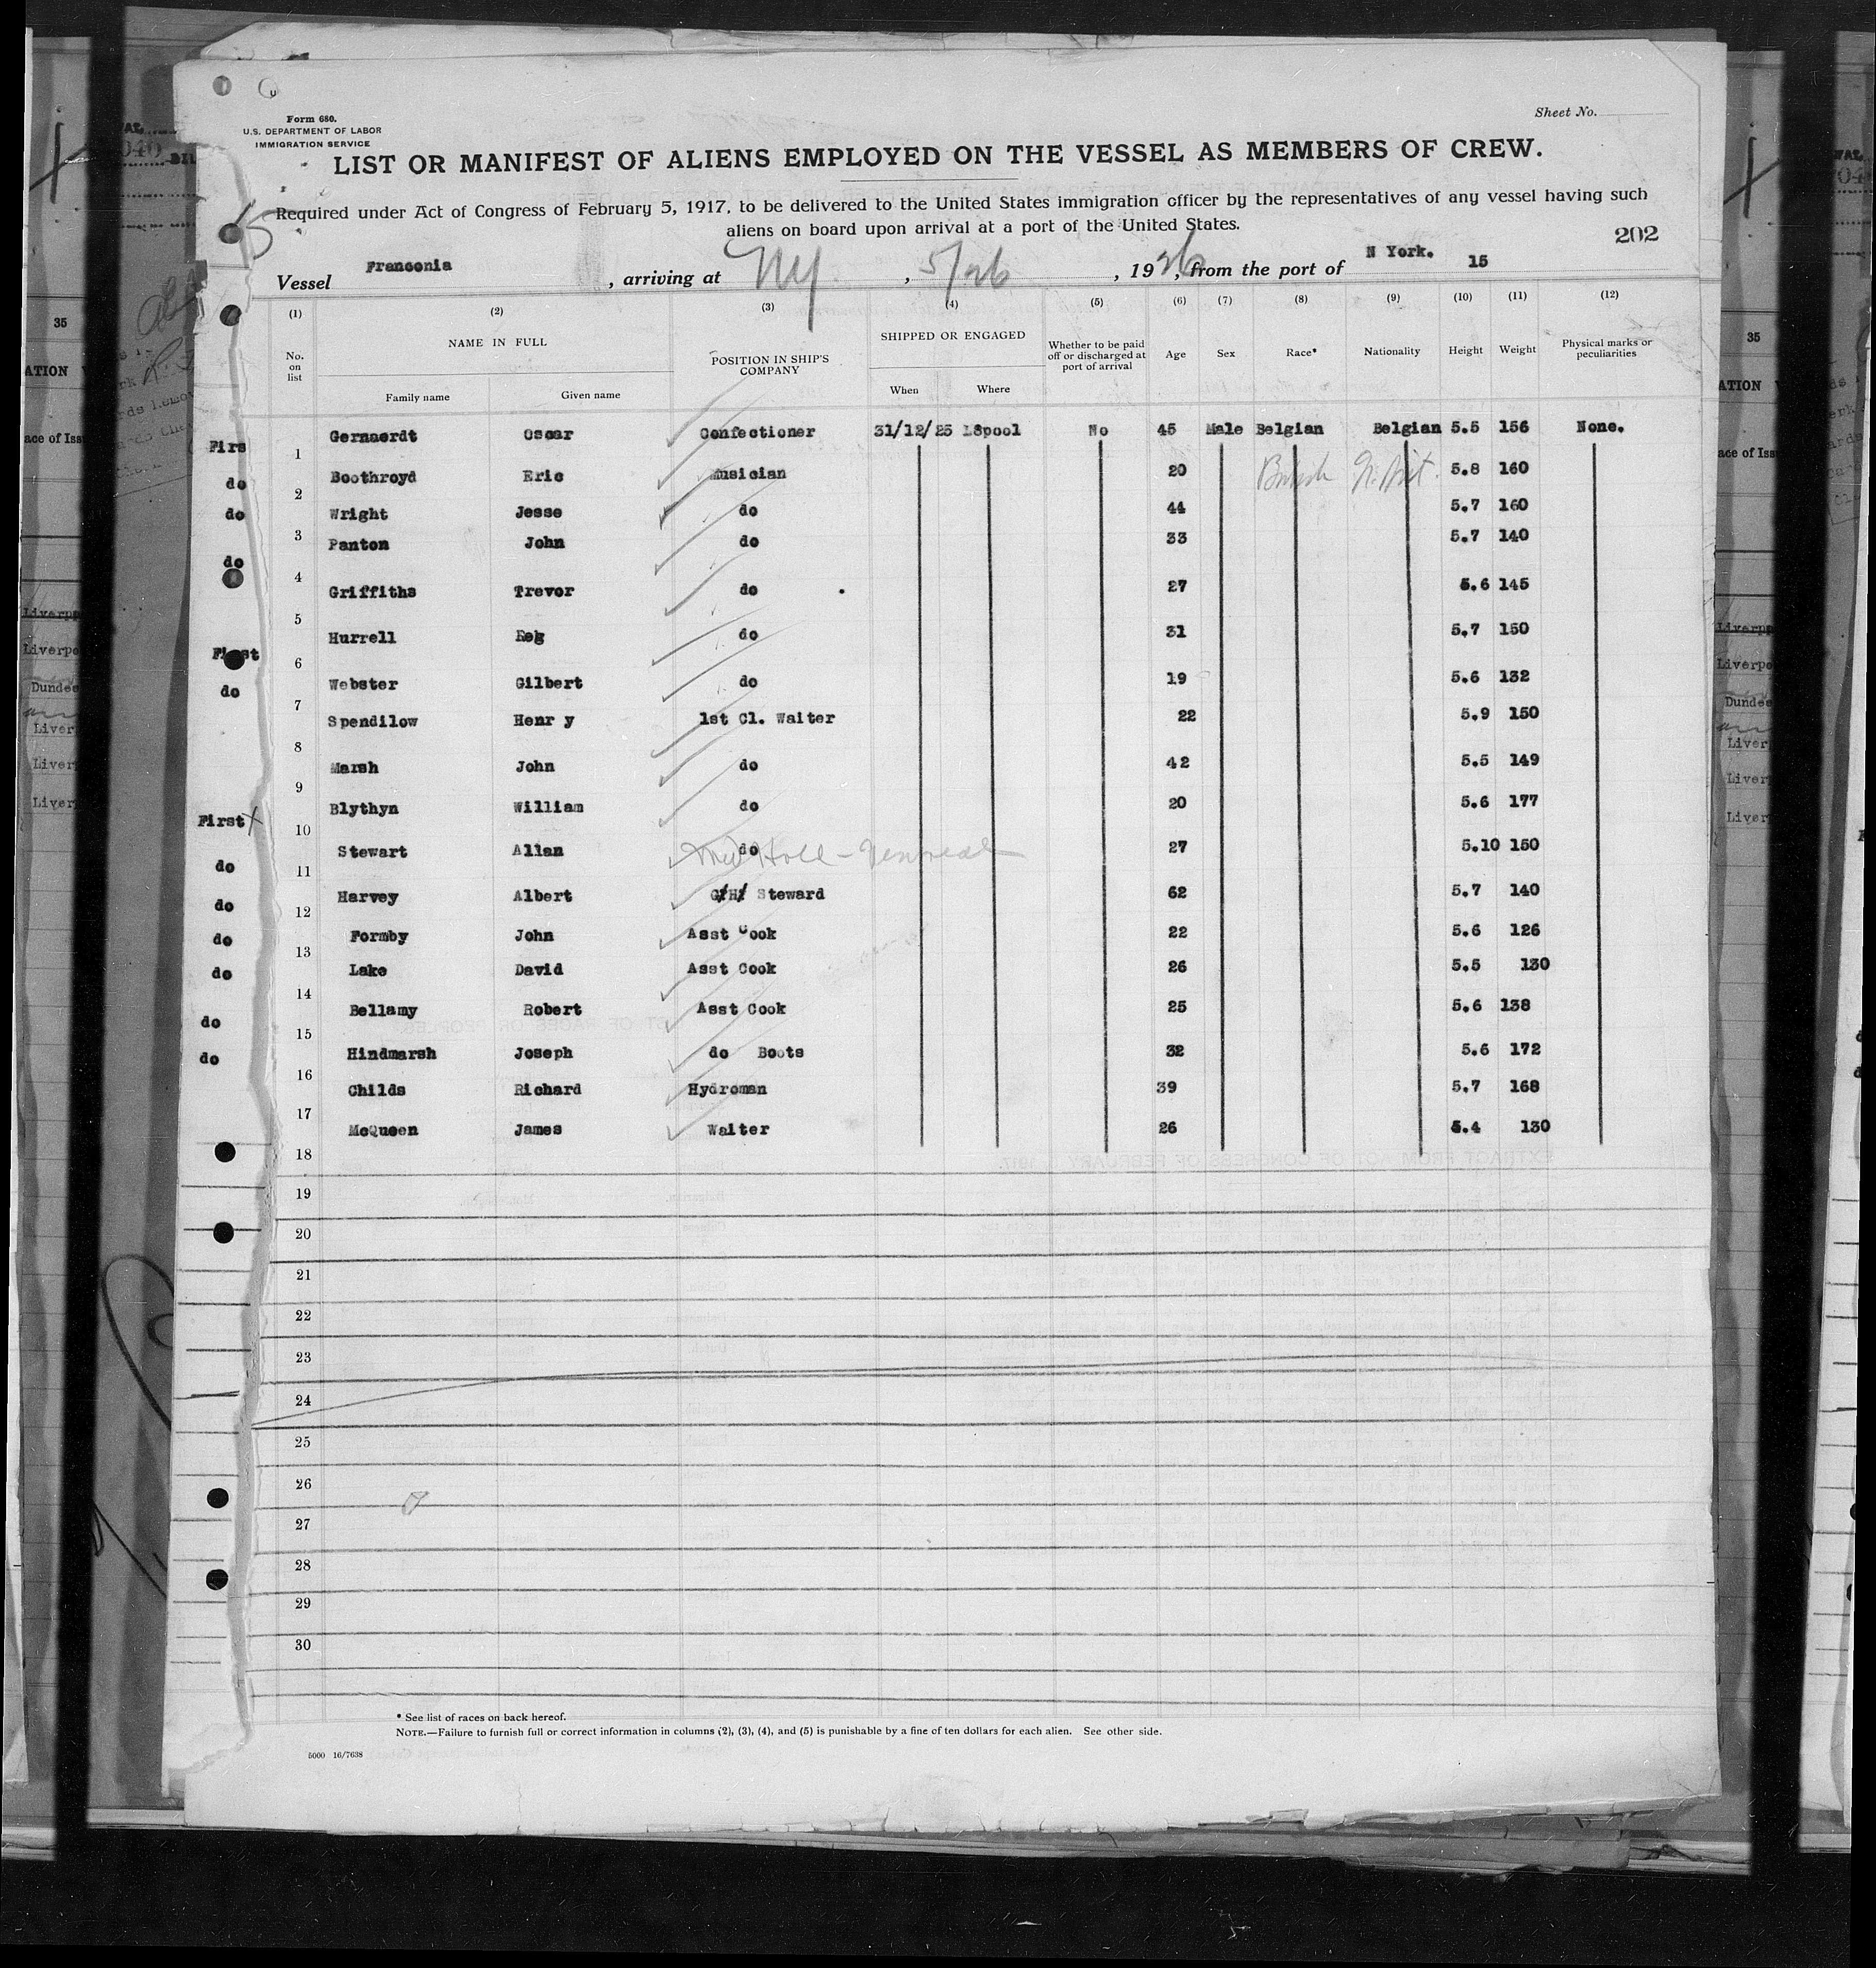 Sheet No.
Form 680.
U.S. DEPARTMENT OF LABOR
IMMIGRATION SERVICE
LIST OR MANIFEST OF ALIENS EMPLOYED ON THE VESSEL AS MEMBERS OF CREW.
Required under Act of Congress of February 5, 1917, to be delivered to the United States immigration officer by the representatives of any vessel having such
aliens on board upon arrival at a port of the United States.
202
Vessel Franconia , arriving at NY , 5/26 , 1926, from the port of N York. 15
(1) (2) (3) (4) (5) (6) (7) (8) (9) (10) (11) (12)
No. on list NAME IN FULL Family name Given name POSITION IN SHIP'S COMPANY SHIPPED OR ENGAGED When Where Whether to be paid off or discharged at port of arrival Age Sex Race* Nationality Height Weight Physical marks or peculiarities
Firs 1 Gernaerdt Oscar Confectioner 31/12/25 LSpool No 45 Male Belgian Belgian 5.5 156 None.
do 2 Boothroyd Eric Musician 20 British 5.8 160
do Wright Jesse do 44 5.7 160
3 Panton John do 33 5.7 140
do 4 Griffiths Trevor do 27 5.6 145
5 Hurrell Reg do 31 5.7 150
First 6
do Webster Gilbert do 19 5.6 132
7 Spendilow Henr y 1st Cl. Waiter 22 5.9 150
8 Marsh John do 42 5.5 149
9 Blythyn William do 20 5.6 177
First X 10 Stewart Allan do 27 5.10 150
do 11 Harvey Albert G/H/ Steward 62 5.7 140
do 12 Formby John Asst Cook 22 5.6 126
do 13 Lake David Asst Cook 26 5.5 130
do 14 Bellamy Robert Asst Cook 25 5.6 138
do 15 Hindmarsh Joseph do Boots 32 5.6 172
do 16 Childs Richard Hydroman 39 5.7 168
17 McQueen James Waiter 26 5.4 130
18
19
20
21
22
23
24
25
26
27
28
29
30
* See list of races on back hereof.
NOTE.—Failure to furnish full or correct information in columns (2), (3), (4), and (5) is punishable by a fine of ten dollars for each alien. See other side.
5000 16/7638